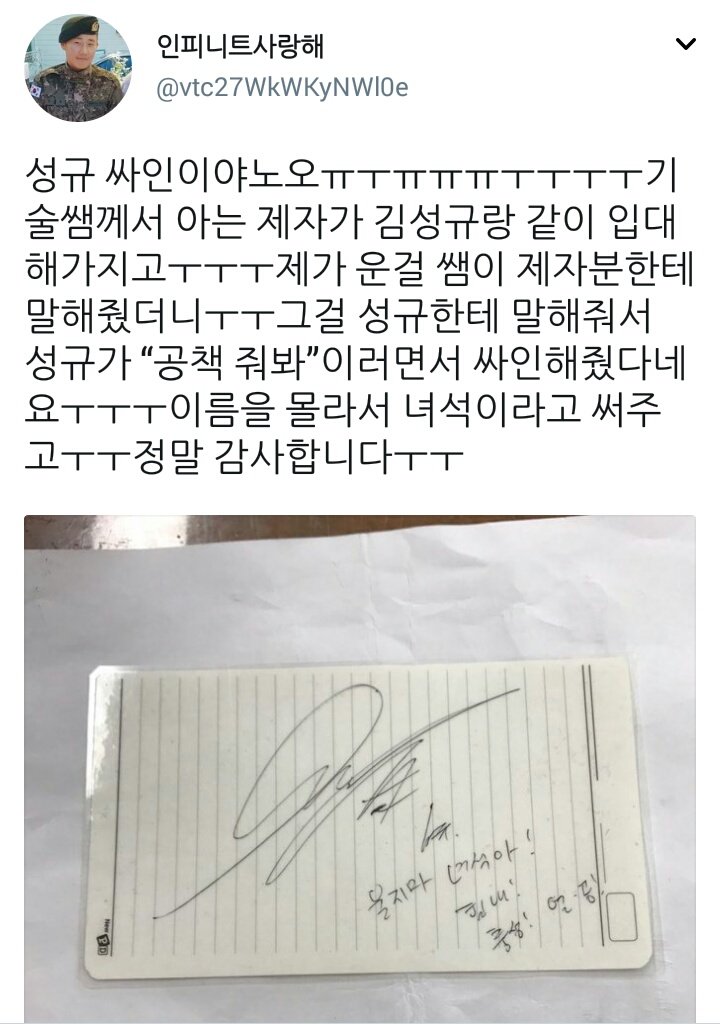 인피니트사랑해
@vtc27WkWKyNWl0e
성규 싸인이야노오ㅠㅜㅠㅠㅠㅜㅜㅜㅜ기
술쌤께서 아는 제자가 김성규랑 같이 입대
해가지고ㅜㅜㅜ제가 운걸 쌤이 제자분한테
말해줬더니ㅜㅜ그걸 성규한테 말해줘서
성규가 “공책 줘봐”이러면서 싸인해줬다네
요ㅜㅜㅜ이름을 몰라서 녀석이라고 써주
고ㅜㅜ정말 감사합니다ㅜㅜ
울지마 녀석아!
힘내!
충성! 열.공!